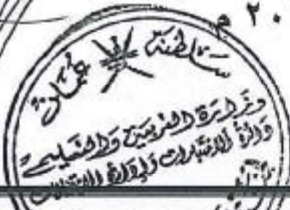 ٢٠ م
سلطنة عمان
وزارة التربية والتعليم
دائرة الاختبارات وإدارة الامتحانات